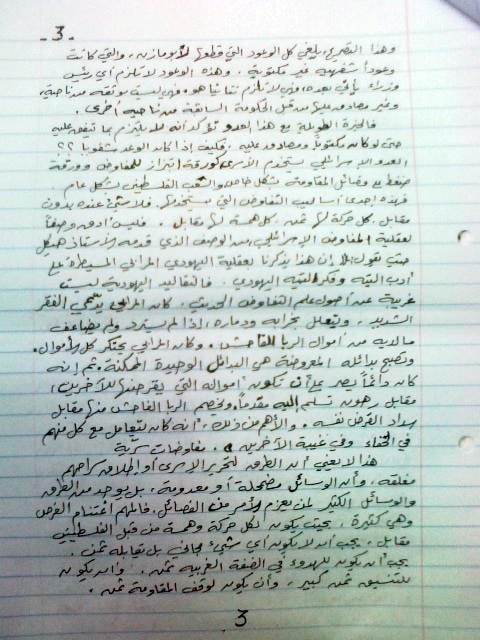 - 3 -
وهذا التصريح يلغي كل الوعود التي قطعها لأبومازن، والتي كانت
وعوداً شفهية غير مكتوبة. وهذه الوعود لا تلزم أي رئيس
وزراء يأتي بعده، فهي لا تلزم نتنياهو، فهي ليست موثقة من ناحية،
وغير مصادق عليها من قبل الحكومة السابقة من ناحية أخرى.
فالخبرة الطويلة مع هذا العدو تؤكد أنه لا يلتزم بما يتفق عليه
حتى لو كان مكتوباً ومصادق عليه. فكيف إذا كان الوعد شفوياً؟؟
العدو الإسرائيلي يستخدم الأسرى كورقة ابتزاز للمفاوض وورقة
ضغط مع فصائل المقاومة بشكل خاص والشعب الفلسطيني بشكل عام
فهذه إحدى أساليب التفاوض التي يستخدمها. فلا شيئ عنده بدون
مقابل. كل حركة لها ثمن. كل همسة لها مقابل. فليس أدق وصفاً
لعقلية المفاوض الإسرائيلي من الوصف الذي قدمه الأستاذ هيكل
حيث يقول: إن هذا يذكرنا بعقلية اليهودي المرابي المسيطرة على
أدب التيه وفكر التيه اليهودي. فالتقاليد اليهودية ليست
غريبة عن أصول علم التفاوض الحديث. كان المرابي يدعي الفقر
الشديد. ويتعلل بخرابه ودماره إذا لم يسترد ولم يضاعف
ماله من أموال الربا الفاحش. وكان المرابي يحتكر كل الأموال.
وتصبح بدائله المعروضة هي البدائل الوحيدة الممكنة. ثم إنه
كان دائماً يصر على أن تكون أمواله التي يقرضها للآخرين
مقابل رهون تسلم إليه مقدماً. ويخصم الربا الفاحش منها مقابل
سداد القرض نفسه. والأهم من ذلك، أنه كان يتعامل مع كل منهم
في الخفاء وفي غيبة الآخرين. مفاوضات سرية
هذا لا يعني أن الطرق لتحرير الأسرى أو إطلاق سراحهم
مغلقة، وأن الوسائل مضمحلة أو معدومة. بل يوجد من الطرق
والوسائل الكثير لمن يعزم الأمر من الفصائل. فالمهم اغتنام الفرص
وهي كثيرة. بحيث يكون لكل حركة وهمسة من قبل الفلسطيني
مقابل. يجب أن لا يكون أي شيئ مجاني بل يقابله ثمن.
يجب أن يكون للهدوء في الضفة الغربية ثمن. وأن يكون
للتنسيق ثمن كبير. وأن يكون لوقف المقاومة ثمن.
3